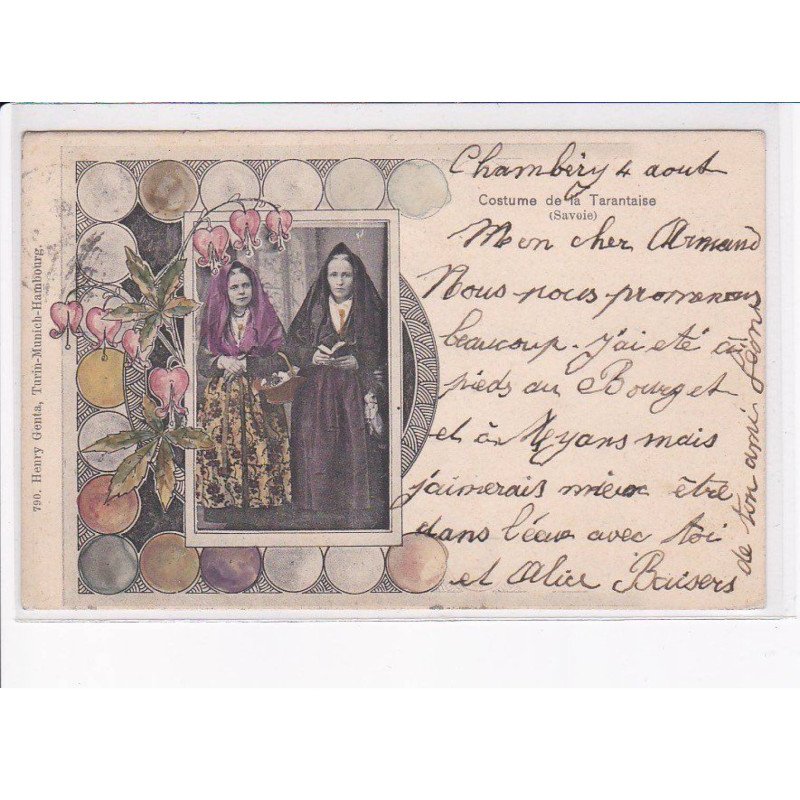 Chambéry 4 aout
Costume de la Tarantaise
(Savoie)
Mon cher Armand
Nous nous promenons
beaucoup. j'ai eté à
pieds au Bourget
et à Myans mais
j'aimerais mieux être
dans l'eau avec toi
et Alice Baisers
de ton ami
790. Henry Genta, Turin-Munich-Hambourg.